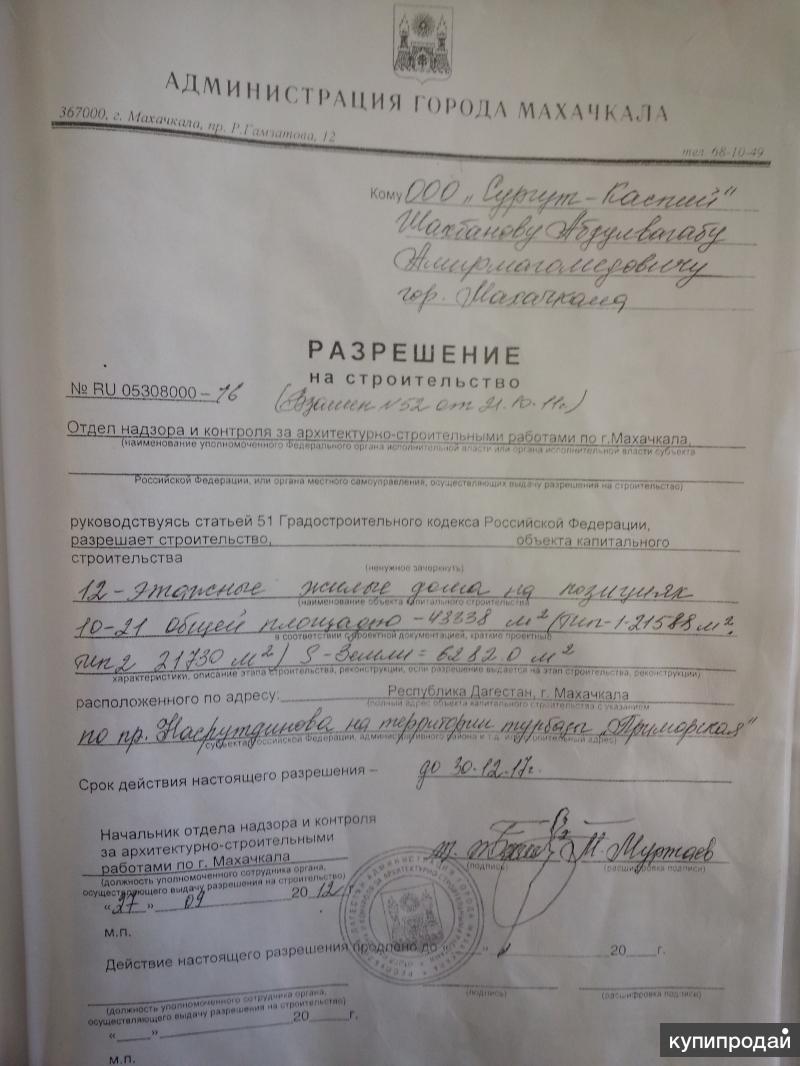 АДМИНИСТРАЦИЯ ГОРОДА МАХАЧКАЛА
367000, г. Махачкала, пр. Р.Гамзатова, 12
тел. 68-10-49
Кому ООО „Сургут-Каспий"
Шахбанову Абдулвагабу
Амирмагомедовичу
гор. Махачкала
РАЗРЕШЕНИЕ
на строительство
№ RU 05308000 – 76 (Взамен N 52 от 21.10.11г.)
Отдел надзора и контроля за архитектурно-строительными работами по г.Махачкала,
(наименование уполномоченного Федерального органа исполнительной власти или органа исполнительной власти субъекта
Российской Федерации, или органа местного самоуправления, осуществляющих выдачу разрешения на строительство)
руководствуясь статьей 51 Градостроительного кодекса Российской Федерации,
разрешает строительство, объекта капитального
строительства
(ненужное зачеркнуть)
12-этажные жилые дома на позициях
(наименование объекта капитального строительства
10-21 общей площадью - 43338 м² (тип-1-21588 м²,
в соответствии с проектной документацией, краткие проектные
тип 2 21730 м²) S-Земли = 6282.0 м²
характеристики, описание этапа строительства, реконструкции, если разрешение выдается на этап строительства, реконструкции)
расположенного по адресу: Республика Дагестан, г. Махачкала
(полный адрес объекта капитального строительства с указанием
по пр. Насрутдинова на территории турбазы „Приморская"
субъекта Российской Федерации, административного района и т.д. или строительный адрес)
Срок действия настоящего разрешения – до 30.12.17г.
Начальник отдела надзора и контроля
за архитектурно-строительными
работами по г. Махачкала
М. Муртаев
(должность уполномоченного сотрудника органа,
осуществляющего выдачу разрешения на строительство)
(подпись) (расшифровка подписи)
„27" 09 2012 г.
м.п.
Действие настоящего разрешения продлено до «  » 20 г.
(должность уполномоченного сотрудника органа,
осуществляющего выдачу разрешения на строительство)
(подпись) (расшифровка подписи)
«  » 20 г.
м.п.
купипродай